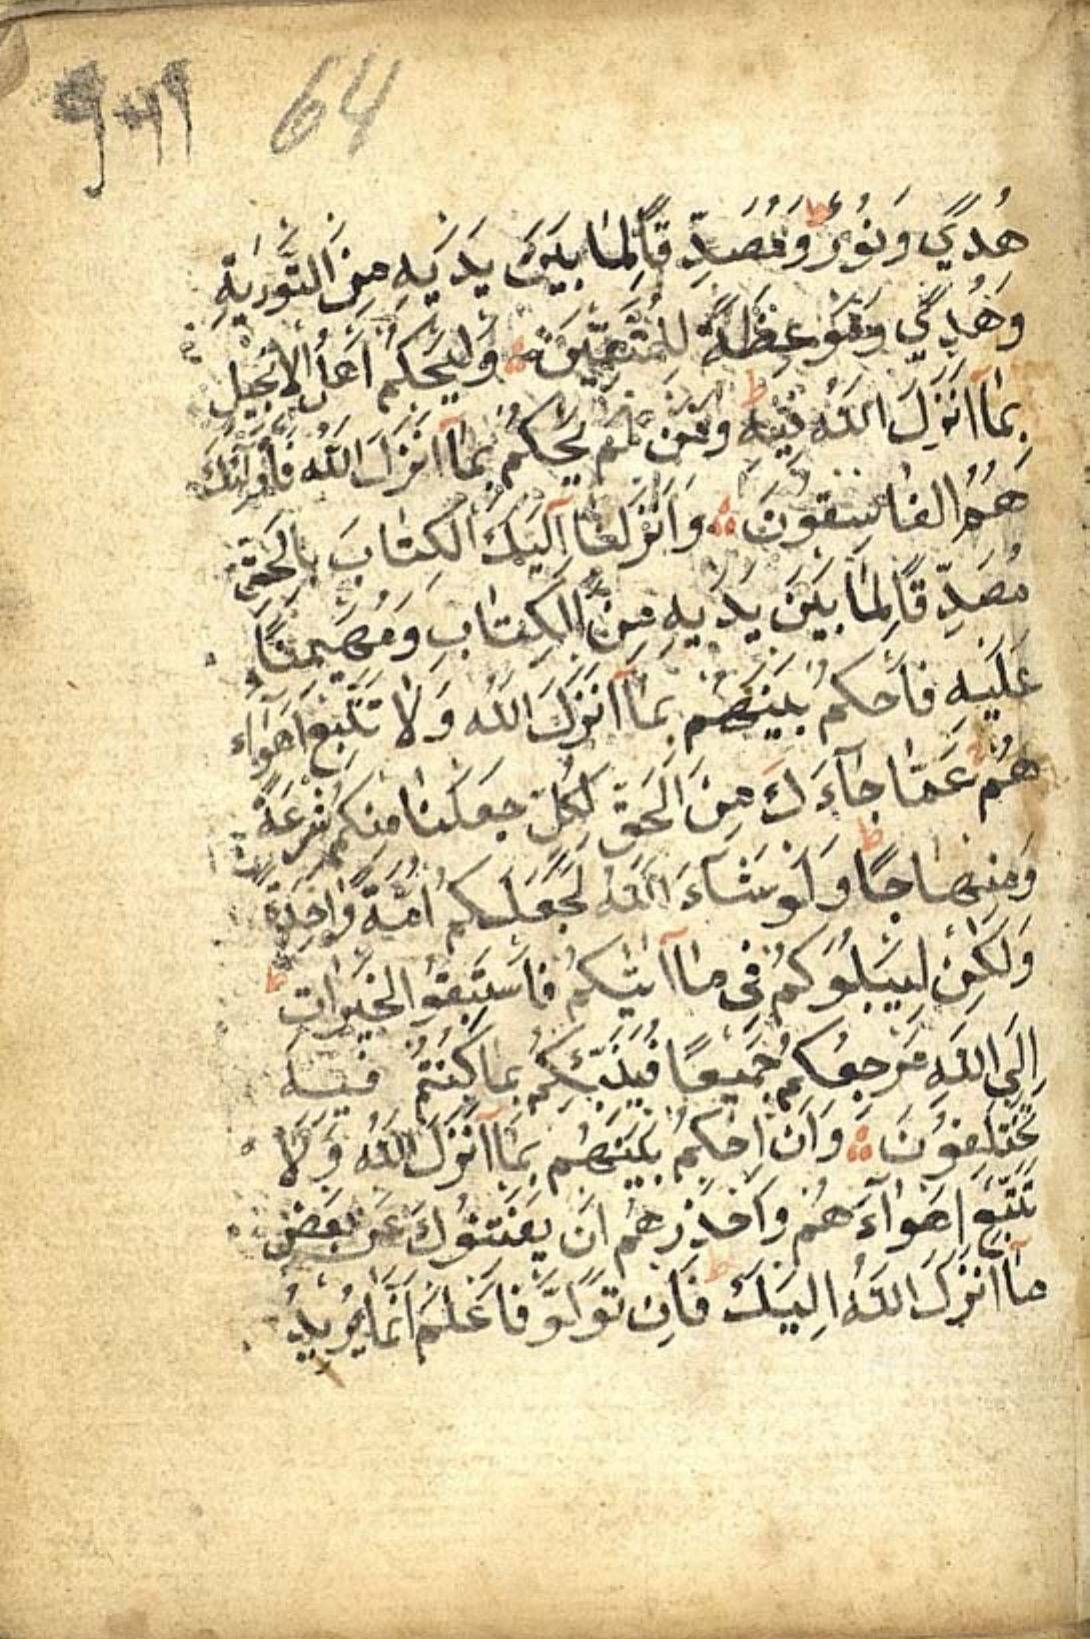 64
هُدًي وَنُورٌ وَمُصَدِّقًا لِمَا بَيْنَ يَدَيْهِ مِنَ التَّوْرٰيةِ
وَهُدًي وَمَوْعِظَةً لِلْمُتَّقِيْنَ وَلْيَحْكُمْ اَهْلُ الْاِنْجِيلِ
بِمَآ اَنْزَلَ اللّٰهُ فِيْهِ وَمَنْ لَمْ يَحْكُمْ بِمَآ اَنْزَلَ اللّٰهُ فَاُولٰئِكَ
هُمُ الْفَاسِقُونَ وَاَنْزَلْنَآ اِلَيْكَ الْكِتٰابَ بِالْحَقِّ
مُصَدِّقًا لِمَا بَيْنَ يَدَيْهِ مِنَ الْكِتٰابِ وَمُهَيْمِنًا
عَلَيْهِ فَاحْكُمْ بَيْنَهُمْ بِمَآ اَنْزَلَ اللّٰهُ وَلَا تَتَّبِعْ اَهْوَاءَ
هُمْ عَمَّا جَآءَكَ مِنَ الْحَقِّ لِكُلٍّ جَعَلْنَا مِنْكُمْ شِرْعَةً
وَمِنْهَاجًا وَلَوْ شَآءَ اللّٰهُ لَجَعَلَكُمْ اُمَّةً وَاحِدَةً
وَلٰكِنْ لِيَبْلُوَكُمْ فِي مَآ اٰتٰيكُمْ فَاسْتَبِقُوا الْخَيْرَاتِ
اِلَي اللّٰهِ مَرْجِعُكُمْ جَمِيْعًا فَيُنَبِّئُكُمْ بِمَا كُنْتُمْ فِيْهِ
تَخْتَلِفُوْنَ وَاَنِ احْكُمْ بَيْنَهُمْ بِمَآ اَنْزَلَ اللّٰهُ وَلَا
تَتَّبِعْ اَهْوَآءَهُمْ وَاحْذَرْهُمْ اَنْ يَفْتِنُوْكَ عَنْ بَعْضِ
مَآ اَنْزَلَ اللّٰهُ اِلَيْكَ فَاِنْ تَوَلَّوْ فَاعْلَمْ اَنَّمَا يُرِيْدُ